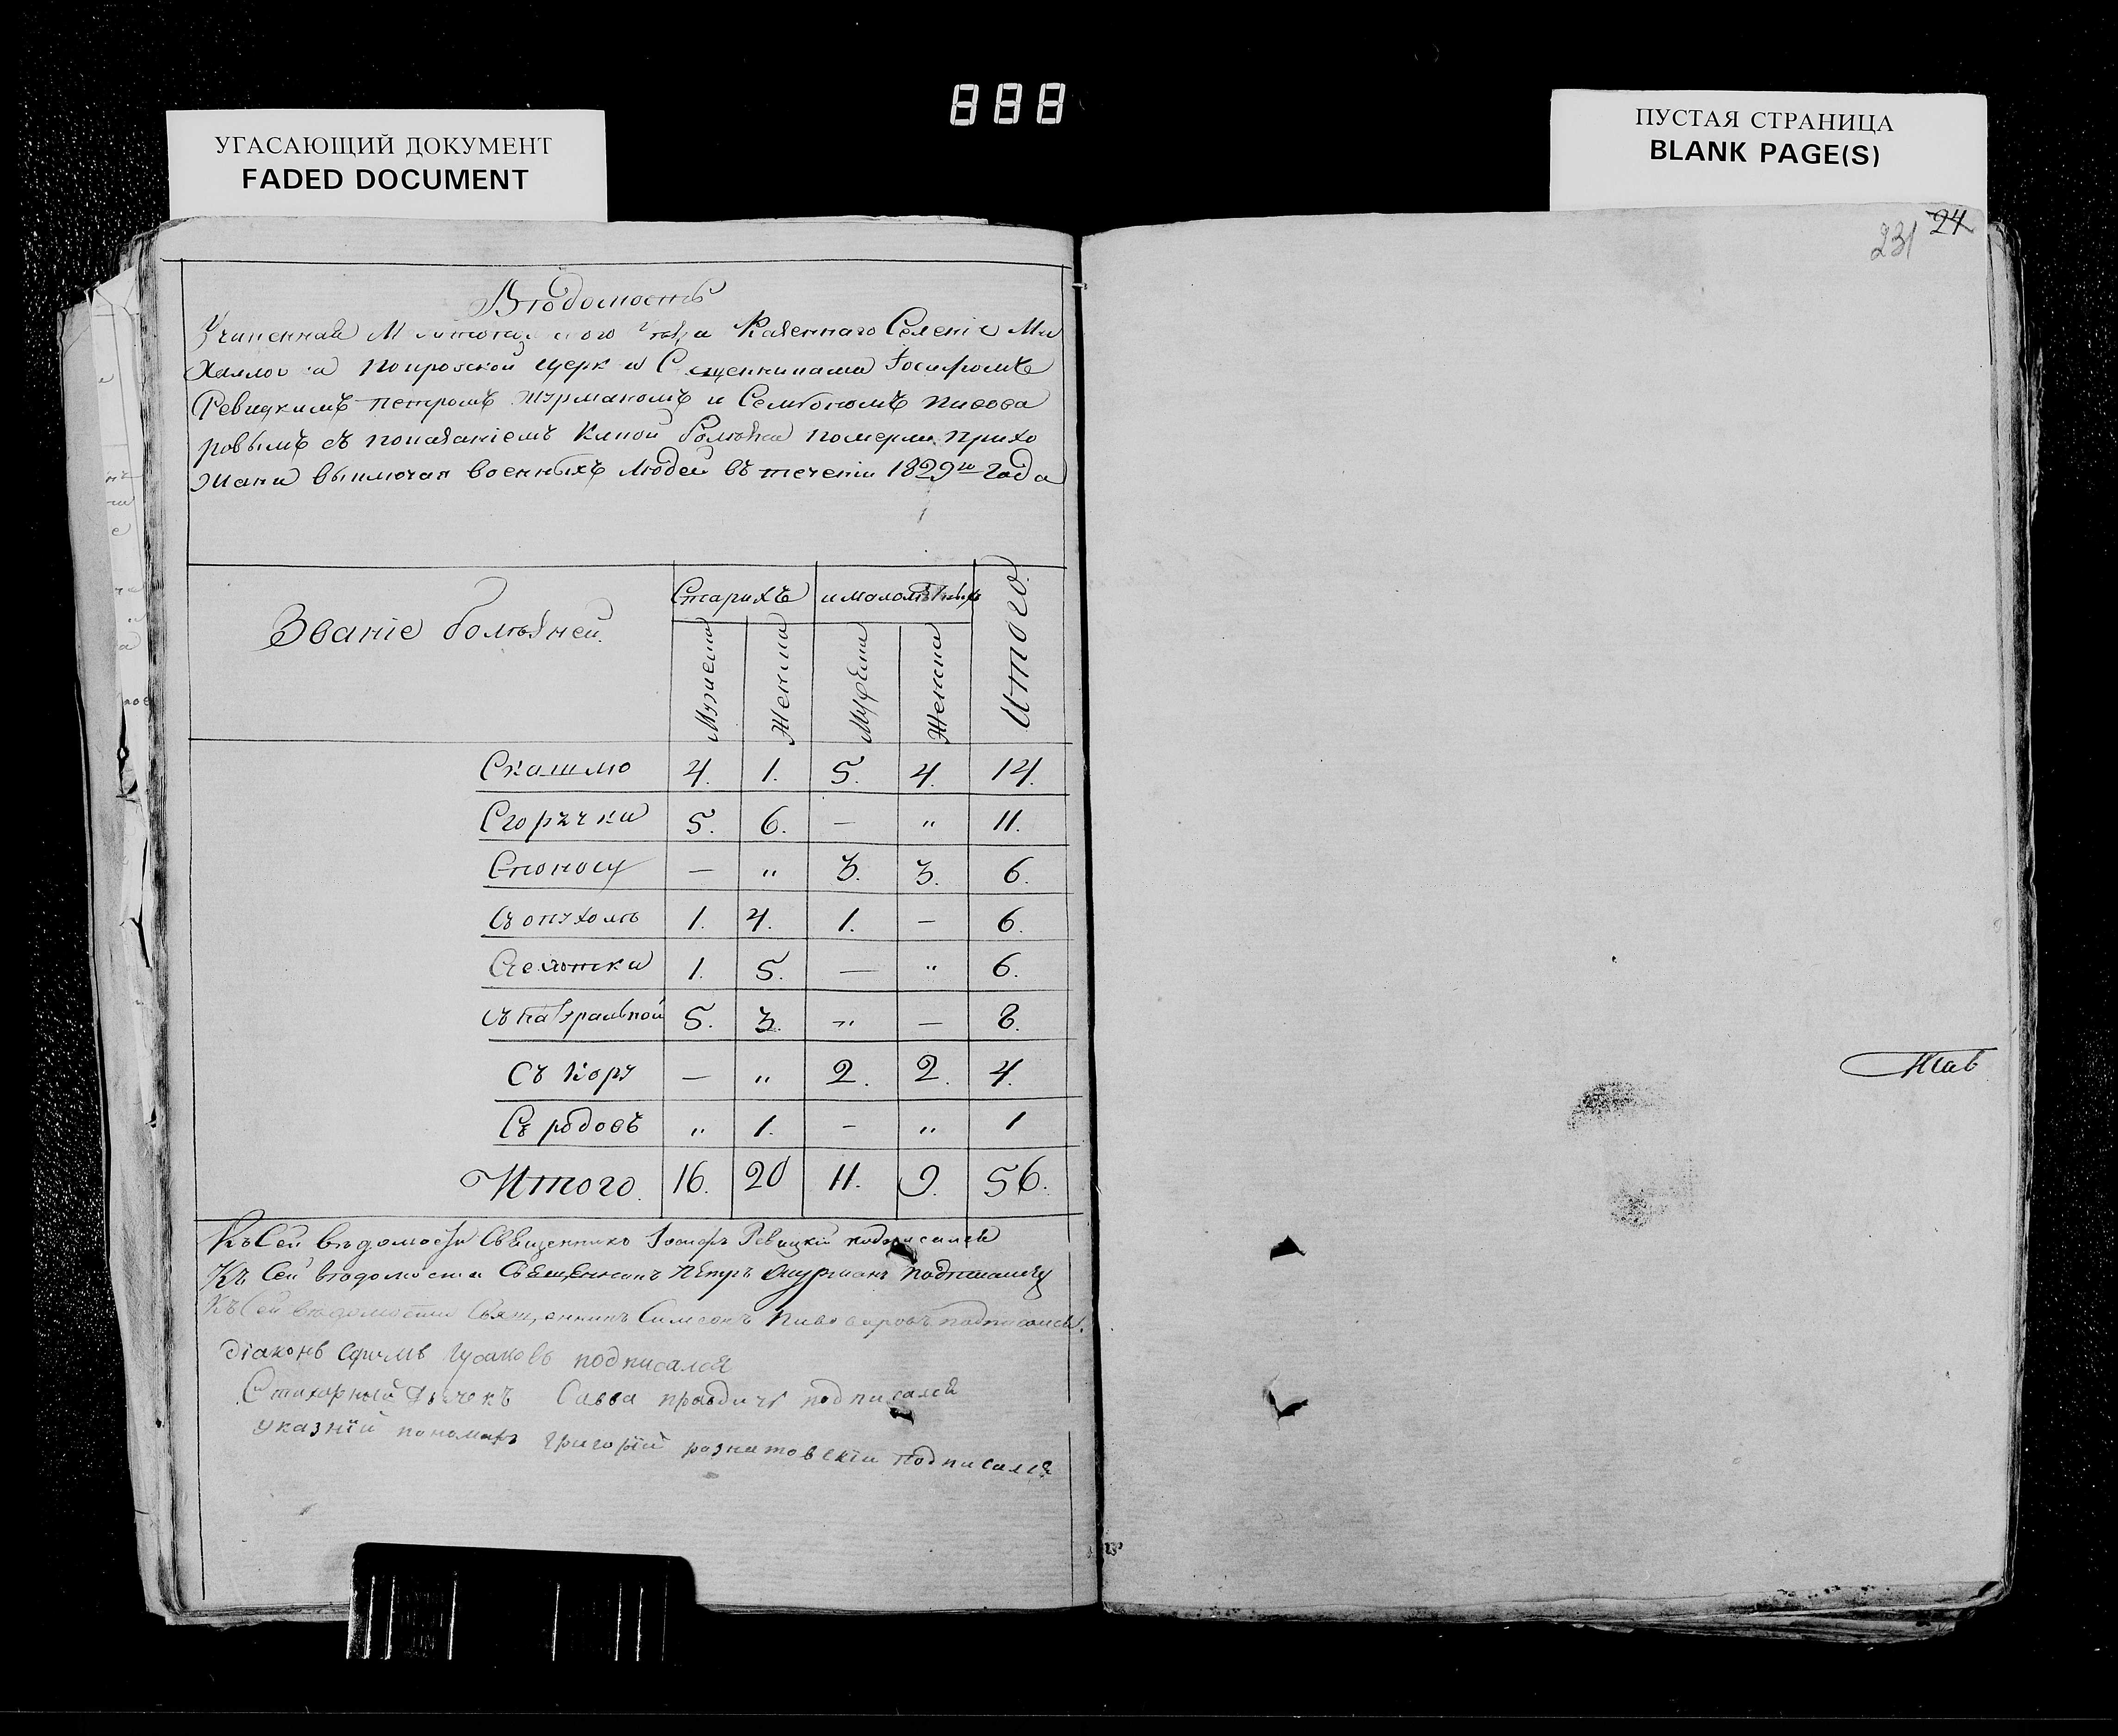 888
УГАСАЮЩИЙ ДОКУМЕНТ
FADED DOCUMENT
ПУСТАЯ СТРАНИЦА
BLANK PAGE(S)
231 24
Вѣдомость
Учиненная Казеннаго Селенія Ми
хаилов Покровской Церк Сщенниками Іосифомъ
Ревицкимъ Петромъ Шурманомъ и Семіономъ Пивова
ровымъ съ показаніемъ Какой болѣзни померли прихо
жани выключая военныхъ людей въ теченіи 1829го Года
Званіе болѣзней.
Старихъ
и малолѣтнихъ
Итого
Мужеска
Женска
Мужеска
Женска
Скашлю 4. 1. 5. 4. 14.
Сгорячки 5. 6. — " 11.
Споносу — " 3. 3. 6.
Съ опухолѣ 1. 4. 1. — 6.
1. 5. — " 6.
Съ натуральной 5. 3. " — 8.
Съ Кору — " 2. 2. 4.
Съ родовъ " 1. — " 1
Итого. 16. 20 11. 9. 56.
Къ Сей вѣдомости Священникъ Іосифъ Ревицкій подписался
Къ Сей вѣдомости Священникъ Петръ Шурманъ подписался
Къ Сей вѣдомости Священникъ Симеонъ Пивоваровъ подписался.
діаконъ Ефимъ Гусаковъ подписался
Стихарный Дьячекъ Савва правдичъ подписался
указній пономаръ григорій рознатовскій подписался